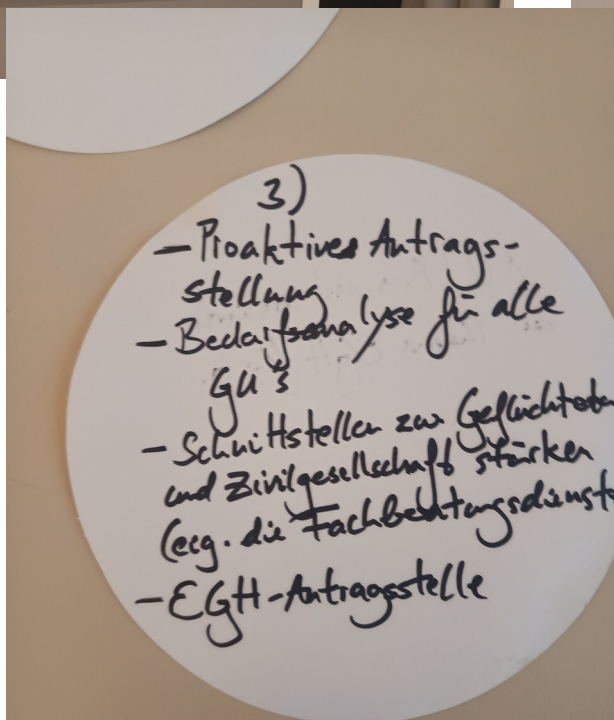 3)
– Proaktives Antrags-
stellung
– Bedarfsanalyse für alle
GU's
– Schnittstellen zur Geflüchteten
und Zivilgesellschaft stärken
die Fachberatungsdienst
– EGH-Antragsstelle